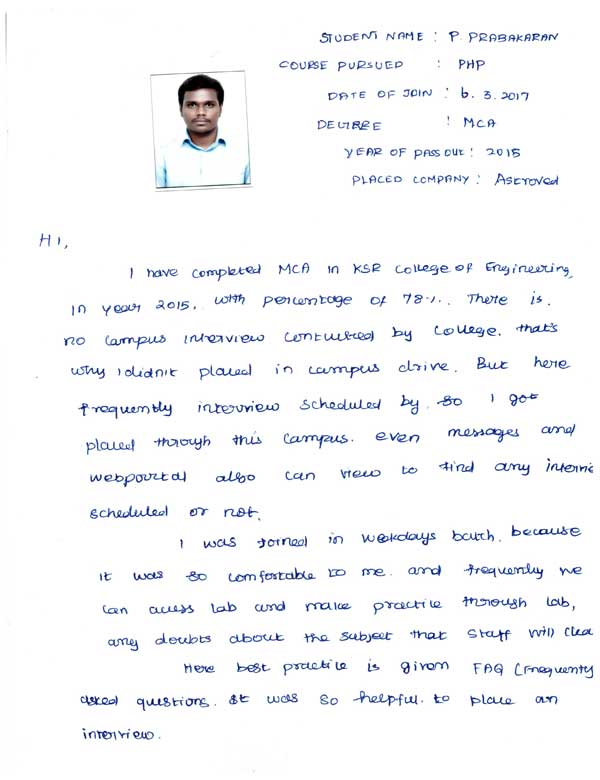 STUDENT NAME : P. PRABAKARAN
COURSE PURSUED : PHP
DATE OF JOIN : 6.3.2017
DEGREE : MCA
YEAR OF PASS OUT : 2015
PLACED COMPANY : Astroved
Hi,
I have completed MCA in KSR College of Engineering,
in year 2015. with percentage of 78%. There is.
no campus interview contucted by college. that's
why i didn't placed in campus drive. But here
frequently interview scheduled by. so I got
placed through this campus. even messages and
webpourtal also can view to find any intervie
scheduled or not.
I was joined in weekdays batch. because
it was so comfortable to me. and frequently we
can access lab and make practice through lab,
any doubts about the subject that staff will clea
Here best practice is given FAQ (Frequently
asked questions. It was so helpful. to place an
interview.